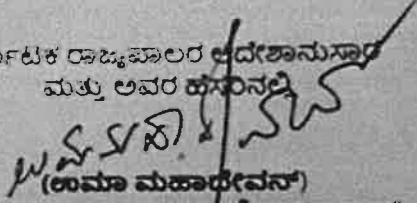 ರ್ನಾಟಕ ರಾಜ್ಯಪಾಲರ ಆದೇಶಾನುಸಾರ
ಮತ್ತು ಅವರ ಹೆಸರಿನಲ್ಲಿ
(ಉಮಾ ಮಹಾದೇವನ್)